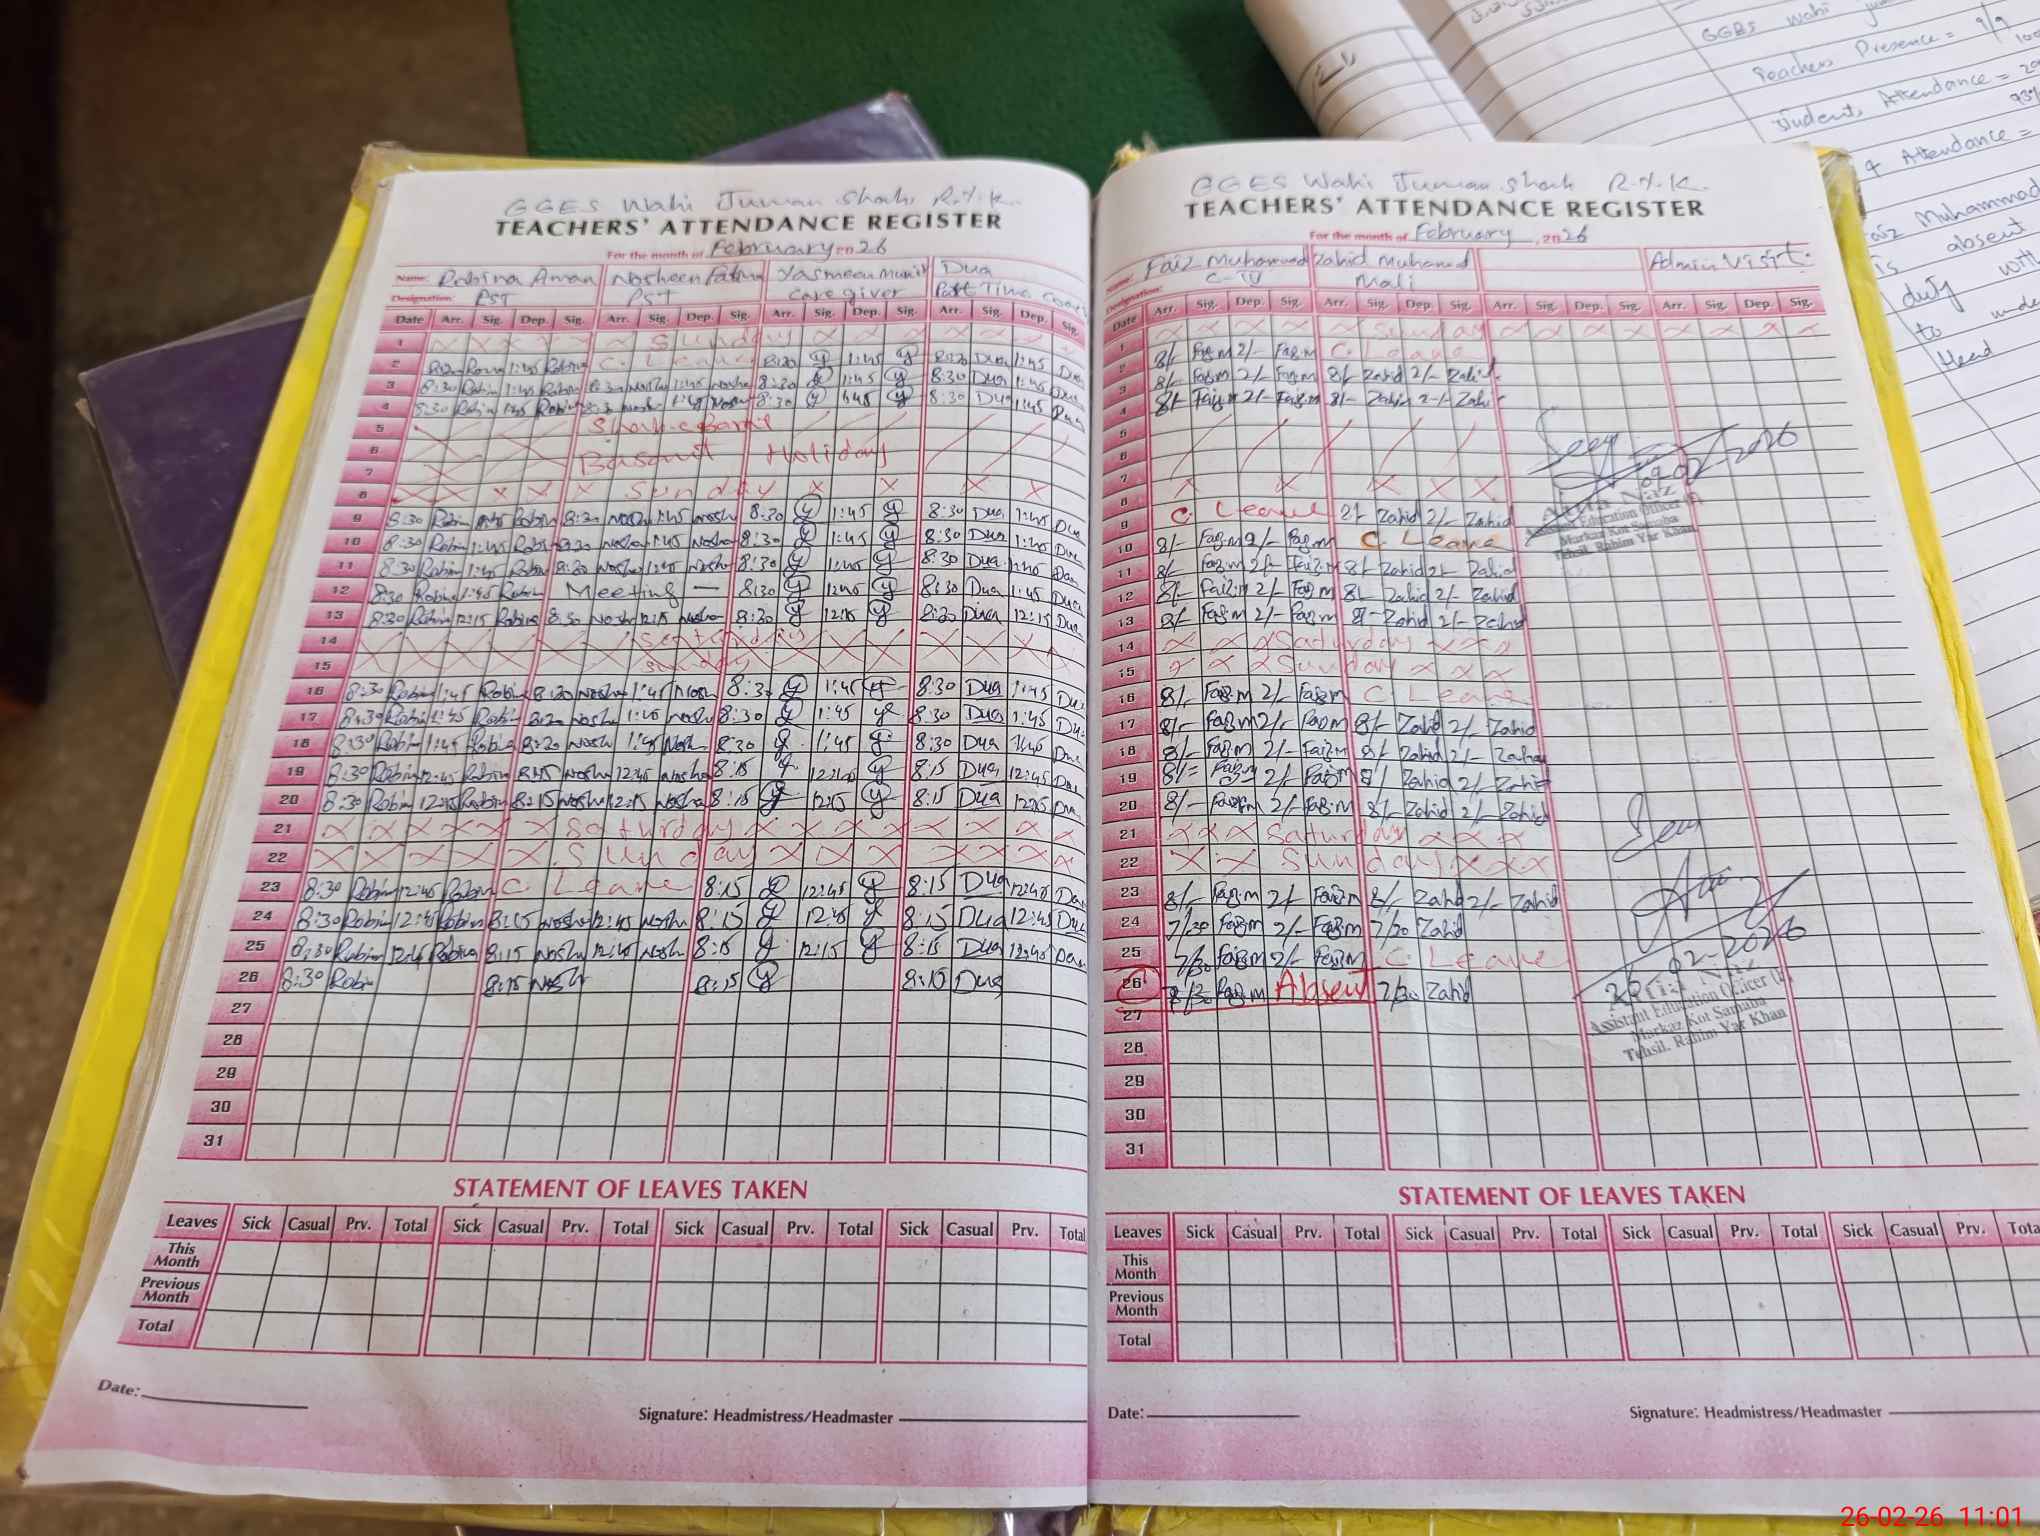 GGES Wahi Juman Shah R.Y.K.
TEACHERS' ATTENDANCE REGISTER
For the month of February 2026
Name: Robina Aman Nosheen Fatima Yasmeen Munir Dua
Designation: PST PST Care giver Part Time Coach
Date Arr. Sig. Dep. Sig. Arr. Sig. Dep. Sig. Arr. Sig. Dep. Sig. Arr. Sig. Dep. Sig.
1 Sunday
2 8:30 1:45 Robin C. Leave 8:30 y 1:45 y 8:30 Dua 1:45 Dua
3 8:30 Robin 1:45 Robin 8:30 Nosh 1:45 Nosh 8:30 y 1:45 y 8:30 Dua 1:45 Dua
4 8:30 Robin 1:45 Robin 8:30 Nosh 1:45 Nosh 8:30 y 1:45 y 8:30 Dua 1:45 Dua
5
6 Basant Holiday
7
8 Sunday
9 8:30 Robin 1:45 Robin 8:30 Nosh 1:45 Nosh 8:30 y 1:45 y 8:30 Dua 1:45 Dua
10 8:30 Robin 1:45 Robin 8:30 Nosh 1:45 Nosh 8:30 y 1:45 y 8:30 Dua 1:45 Dua
11 8:30 Robin 1:45 Robin 8:30 Nosh 1:45 Nosh 8:30 y 1:45 y 8:30 Dua 1:45 Dua
12 8:30 Robin 1:45 Robin Meeting — 8:30 y 12:45 y 8:30 Dua 1:45 Dua
13 8:30 Robin 12:15 Robin 8:30 Nosh 12:15 Nosh 8:30 y 12:15 y 8:30 Dua 12:15 Dua
14 Saturday
15 Sunday
16 8:30 Robin 1:45 Robin 8:30 Nosh 1:45 Nosh 8:30 y 1:45 y 8:30 Dua 1:45 Dua
17 8:30 Robin 1:45 Robin 8:30 Nosh 1:45 Nosh 8:30 y 1:45 y 8:30 Dua 1:45 Dua
18 8:30 Robin 1:45 Robin 8:30 Nosh 1:45 Nosh 8:30 y 1:45 y 8:30 Dua 1:45 Dua
19 8:30 Robin 12:45 Robin 8:15 Nosh 12:45 Nosh 8:15 y 12:45 y 8:15 Dua 12:45 Dua
20 8:30 Robin 12:15 Robin 8:15 Nosh 12:15 Nosh 8:15 y 12:15 y 8:15 Dua 12:15 Dua
21 Saturday
22 Sunday
23 8:30 Robin 12:45 Robin C. Leave 8:15 y 12:45 y 8:15 Dua 12:45 Dua
24 8:30 Robin 12:45 Robin 8:15 Nosh 12:45 Nosh 8:15 y 12:45 y 8:15 Dua 12:45 Dua
25 8:30 Robin 12:45 Robina 8:15 Nosh 12:45 Nosh 8:15 y 12:15 y 8:15 Dua 12:45 Dua
26 8:30 Robin 8:15 Nosh 8:15 y 8:15 Dua
27
28
29
30
31
STATEMENT OF LEAVES TAKEN
Leaves Sick Casual Prv. Total Sick Casual Prv. Total Sick Casual Prv. Total Sick Casual Prv. Total
This Month
Previous Month
Total
Date:
Signature: Headmistress/Headmaster
GGES Wahi Juman Shah R.Y.K.
TEACHERS' ATTENDANCE REGISTER
For the month of February, 2026
Name: Faiz Muhammad Zahid Muhamad Admin Visit
Designation: C-IV Mali
Date Arr. Sig. Dep. Sig. Arr. Sig. Dep. Sig. Arr. Sig. Dep. Sig. Arr. Sig. Dep. Sig.
1 Sunday
2 8/- Faiz.m 2/- Faiz.m C. Leave
3 8/- Faiz.m 2/- Faiz.m 8/- Zahid 2/- Zahid
4 8/- Faiz.m 2/- Faiz.m 8/- Zahid 2/- Zahid
5
6
7
8
9 C. Leave 2/- Zahid 2/- Zahid
10 8/- Faiz.m 2/- Faiz.m C. Leave
11 8/- Faiz.m 2/- Faiz.m 8/- Zahid 2/- Zahid
12 8/- Faiz.m 2/- Faiz.m 8/- Zahid 2/- Zahid
13 8/- Faiz.m 2/- Faiz.m 8/- Zahid 2/- Zahid
14 Saturday
15 Sunday
16 8/- Faiz.m 2/- Faiz.m C. Leave
17 8/- Faiz.m 2/- Faiz.m 8/- Zahid 2/- Zahid
18 8/- Faiz.m 2/- Faiz.m 8/- Zahid 2/- Zahid
19 8/- Faiz.m 2/- Faiz.m 8/- Zahid 2/- Zahid
20 8/- Faiz.m 2/- Faiz.m 8/- Zahid 2/- Zahid
21 Saturday
22 Sunday
23 8/- Faiz.m 2/- Faiz.m 8/- Zahid 2/- Zahid
24 7/30 Faiz.m 2/- Faiz.m 7/30 Zahid
25 7/30 Faiz.m 2/- Faiz.m C. Leave
26 Faiz.m Absent 7/30 Zahid
27
28
29
30
31
09-02-2026
Assistant Education Officer
Markaz Kot Samaba
Tehsil. Rahim Yar Khan
26-02-2026
Assistant Education Officer
Markaz Kot Samaba
Tehsil. Rahim Yar Khan
STATEMENT OF LEAVES TAKEN
Leaves Sick Casual Prv. Total Sick Casual Prv. Total Sick Casual Prv. Total Sick Casual Prv.
This Month
Previous Month
Total
Date:
Signature: Headmistress/Headmaster
GGES Wahi
Teachers Presence = 9/9
Students Attendance =
Attendance =
Faiz Muhammad
is absent
duty with
to
Head
26-02-26 11:01